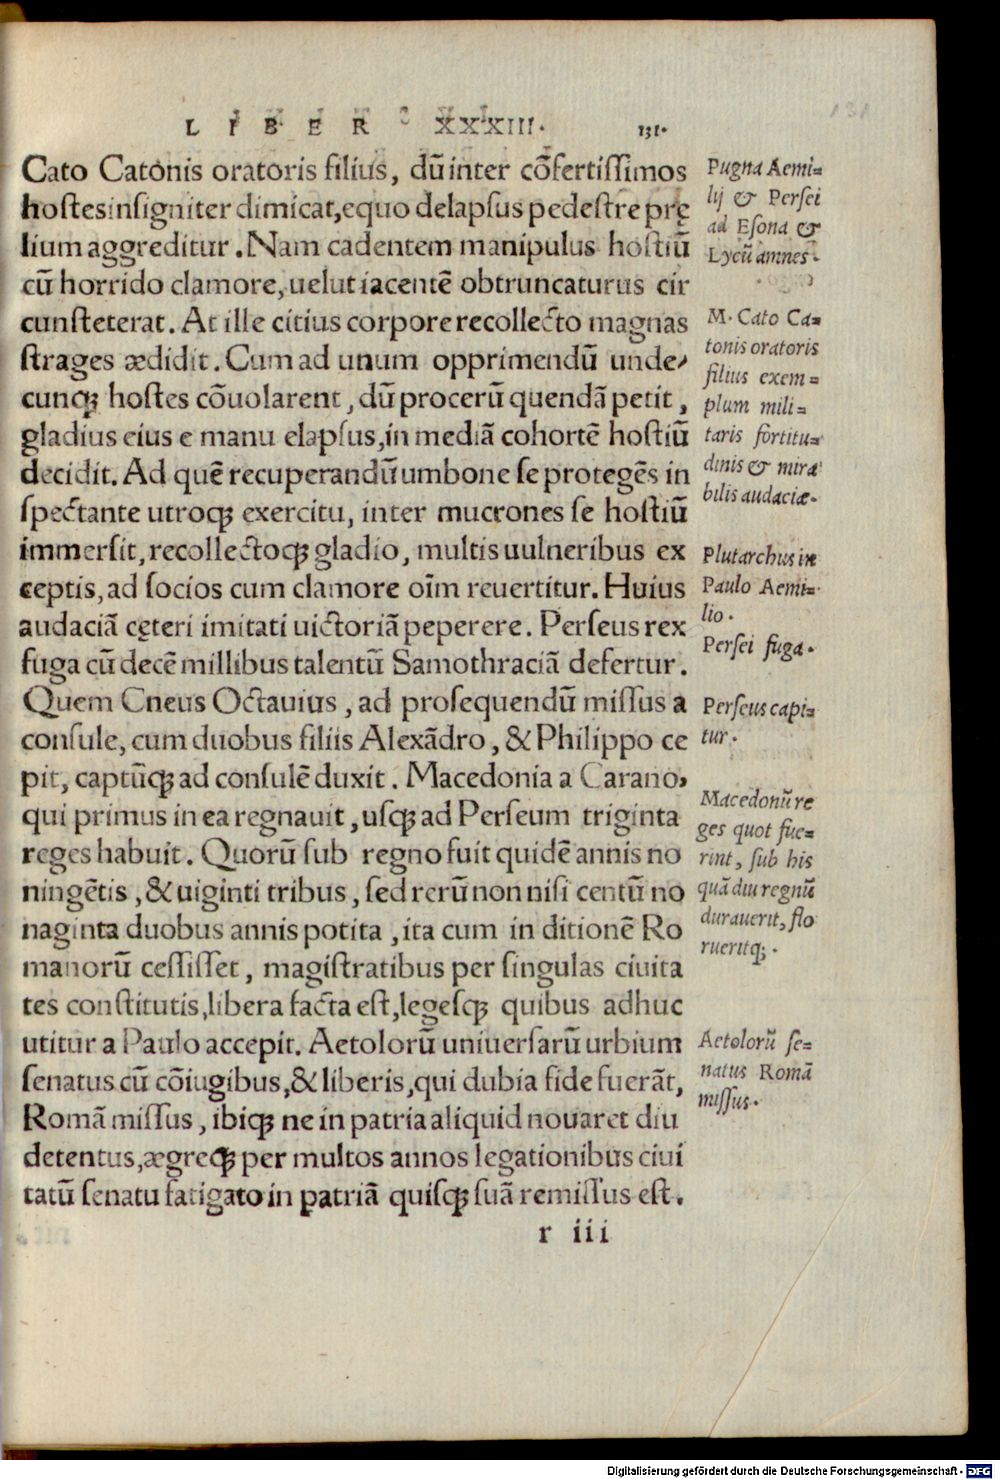 LIBER XXXIII. 131.
Cato Catonis oratoris filius, dū inter cōfertiſſimos
hoſtes inſigniter dimicat, equo delapſus pedeſtre prę
lium aggreditur. Nam cadentem manipulus hoſtiū
cū horrido clamore, uelut iacentē obtruncaturus cir
cunſteterat. At ille citius corpore recollecto magnas
ſtrages ædidit. Cum ad unum opprimendū unde⸗
cunqȝ hoſtes cōuolarent, dū procerū quendā petit,
gladius eius e manu elapſus, in mediā cohortē hoſtiū
decidit. Ad quē recuperandū umbone ſe protegēs in
ſpectante utroqȝ exercitu, inter mucrones ſe hoſtiū
immerſit, recollectoqȝ gladio, multis uulneribus ex
ceptis, ad ſocios cum clamore oīm reuertitur. Huius
audaciā cęteri imitati uictoriā peperere. Perſeus rex
fuga cū decē millibus talentū Samothraciā defertur.
Quem Cneus Octauius, ad proſequendū miſſus a
conſule, cum duobus filiis Alexādro, & Philippo ce
pit, captūqȝ ad conſulē duxit. Macedonia a Carano,
qui primus in ea regnauit, uſqȝ ad Perſeum triginta
reges habuit. Quorū ſub regno fuit quidē annis no
ningētis, & uiginti tribus, ſed rerū non niſi centū no
naginta duobus annis potita, ita cum in ditionē Ro
manorū ceſſiſſet, magiſtratibus per ſingulas ciuita
tes conſtitutis, libera facta eſt, legeſqȝ quibus adhuc
utitur a Paulo accepit. Aetolorū uniuerſarū urbium
ſenatus cū cōiugibus, & liberis, qui dubia fide fuerāt,
Romā miſſus, ibiqȝ ne in patria aliquid nouaret diu
detentus, ægreqȝ per multos annos legationibus ciui
tatū ſenatu fatigato in patriā quiſqȝ ſuā remiſſus eſt.
r iii
Pugna Aemi=
lij & Perſei
ad Eſona &
Lycū amnes.
M. Cato Ca=
tonis oratoris
filius exem=
plum mili=
taris fortitu=
dinis & mira
bilis audaciæ.
Plutarchus in
Paulo Aemi=
lio.
Perſei fuga.
Perſeus capi=
tur.
Macedonū re
ges quot fue=
rint, ſub his
quā diu regnū
durauerit, flo
rueritqȝ.
Aetolorū ſe=
natus Romā
miſſus.
131
Digitalisierung gefördert durch die Deutsche Forschungsgemeinschaft - DFG